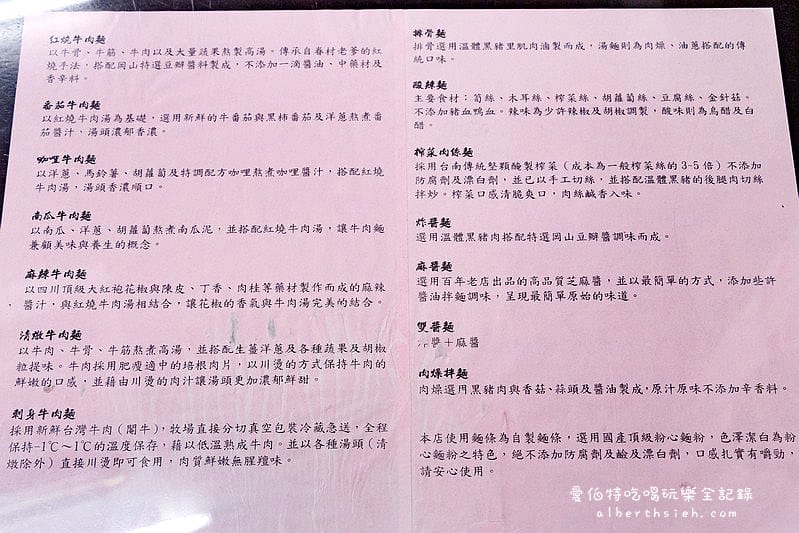 紅燒牛肉麵
以牛骨、牛筋、牛肉以及大量蔬果熬製高湯。傳承自眷村老爹的紅
燒手法,搭配岡山特選豆瓣醬料製成,不添加一滴醬油、中藥材及
香辛料。
番茄牛肉麵
以紅燒牛肉湯為基礎,選用新鮮的牛番茄與黑柿番茄及洋蔥熬煮番
茄醬汁,湯頭濃郁香濃。
咖哩牛肉麵
以洋蔥、馬鈴薯、胡蘿蔔及特調配方咖哩熬煮咖哩醬汁,搭配紅燒
牛肉湯,湯頭香濃順口。
南瓜牛肉麵
以南瓜、洋蔥、胡蘿蔔熬煮南瓜泥,並搭配紅燒牛肉湯,讓牛肉麵
兼顧美味與養生的概念。
麻辣牛肉麵
以四川頂級大紅袍花椒與陳皮、丁香、肉桂等藥材製作而成的麻辣
醬汁,與紅燒牛肉湯相結合,讓花椒的香氣與牛肉湯完美的結合。
清燉牛肉麵
以牛肉、牛骨、牛筋熬煮高湯,並搭配生薑洋蔥及各種蔬果及胡椒
粒提味。牛肉採用肥瘦適中的培根肉片,以川燙的方式保持牛肉的
鮮嫩的口感,並藉由川燙的肉汁讓湯頭更加濃郁鮮甜。
刺身牛肉麵
採用新鮮台灣牛肉(閹牛),牧場直接分切真空包裝冷藏急送,全程
保持-1℃~1℃的溫度保存,藉以低溫熟成牛肉。並以各種湯頭(清
燉除外)直接川燙即可食用,肉質鮮嫩無腥羶味。
排骨麵
排骨選用溫體黑豬里肌肉滷製而成,湯麵則為肉燥、油蔥搭配的傳
統口味。
酸辣麵
主要食材:筍絲、木耳絲、榨菜絲、胡蘿蔔絲、豆腐絲、金針菇。
不添加豬血鴨血。辣味為少許辣椒及胡椒調製,酸味則為烏醋及白
醋。
榨菜肉絲麵
採用台南傳統整顆醃製榨菜(成本為一般榨菜絲的3-5倍)不添加
防腐劑及漂白劑,並已以手工切絲,並搭配溫體黑豬的後腿肉切絲
拌炒。榨菜口感清脆爽口,肉絲鹹香入味。
炸醬麵
選用溫體黑豬肉搭配特選岡山豆瓣醬調味而成。
麻醬麵
選用百年老店出品的高品質芝麻醬,並以最簡單的方式,添加些許
醬油拌麵調味,呈現最簡單原始的味道。
雙醬麵
炸醬+麻醬
肉燥拌麵
肉燥選用黑豬肉與香菇、蒜頭及醬油製成,原汁原味不添加辛香料。
本店使用麵條為自製麵條,選用國產頂級粉心麵粉,色澤潔白為粉
心麵粉之特色,絕不添加防腐劑及鹼及漂白劑,口感扎實有嚼勁,
請安心使用。
愛伯特吃喝玩樂全記錄
alberthsieh.com